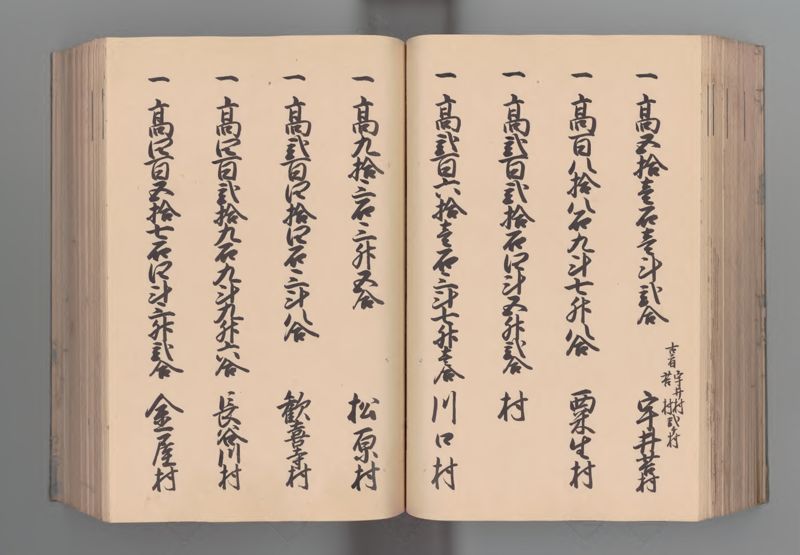 一 高五拾壱石壱斗弐合
宇井苔村
一 高百八拾八石九斗七升八合 粟生村
一 高弐百弐拾石四斗五升弐合 村
一 高弐百六拾壱石三斗七升壱合 川口村
一 高九拾三石三升五合 松原村
一 高弐百四拾四石三斗八合 歓喜寺村
一 高四百弐拾九石九斗九升六合 長谷川村
一 高四百五拾七石四斗三升弐合 金屋村